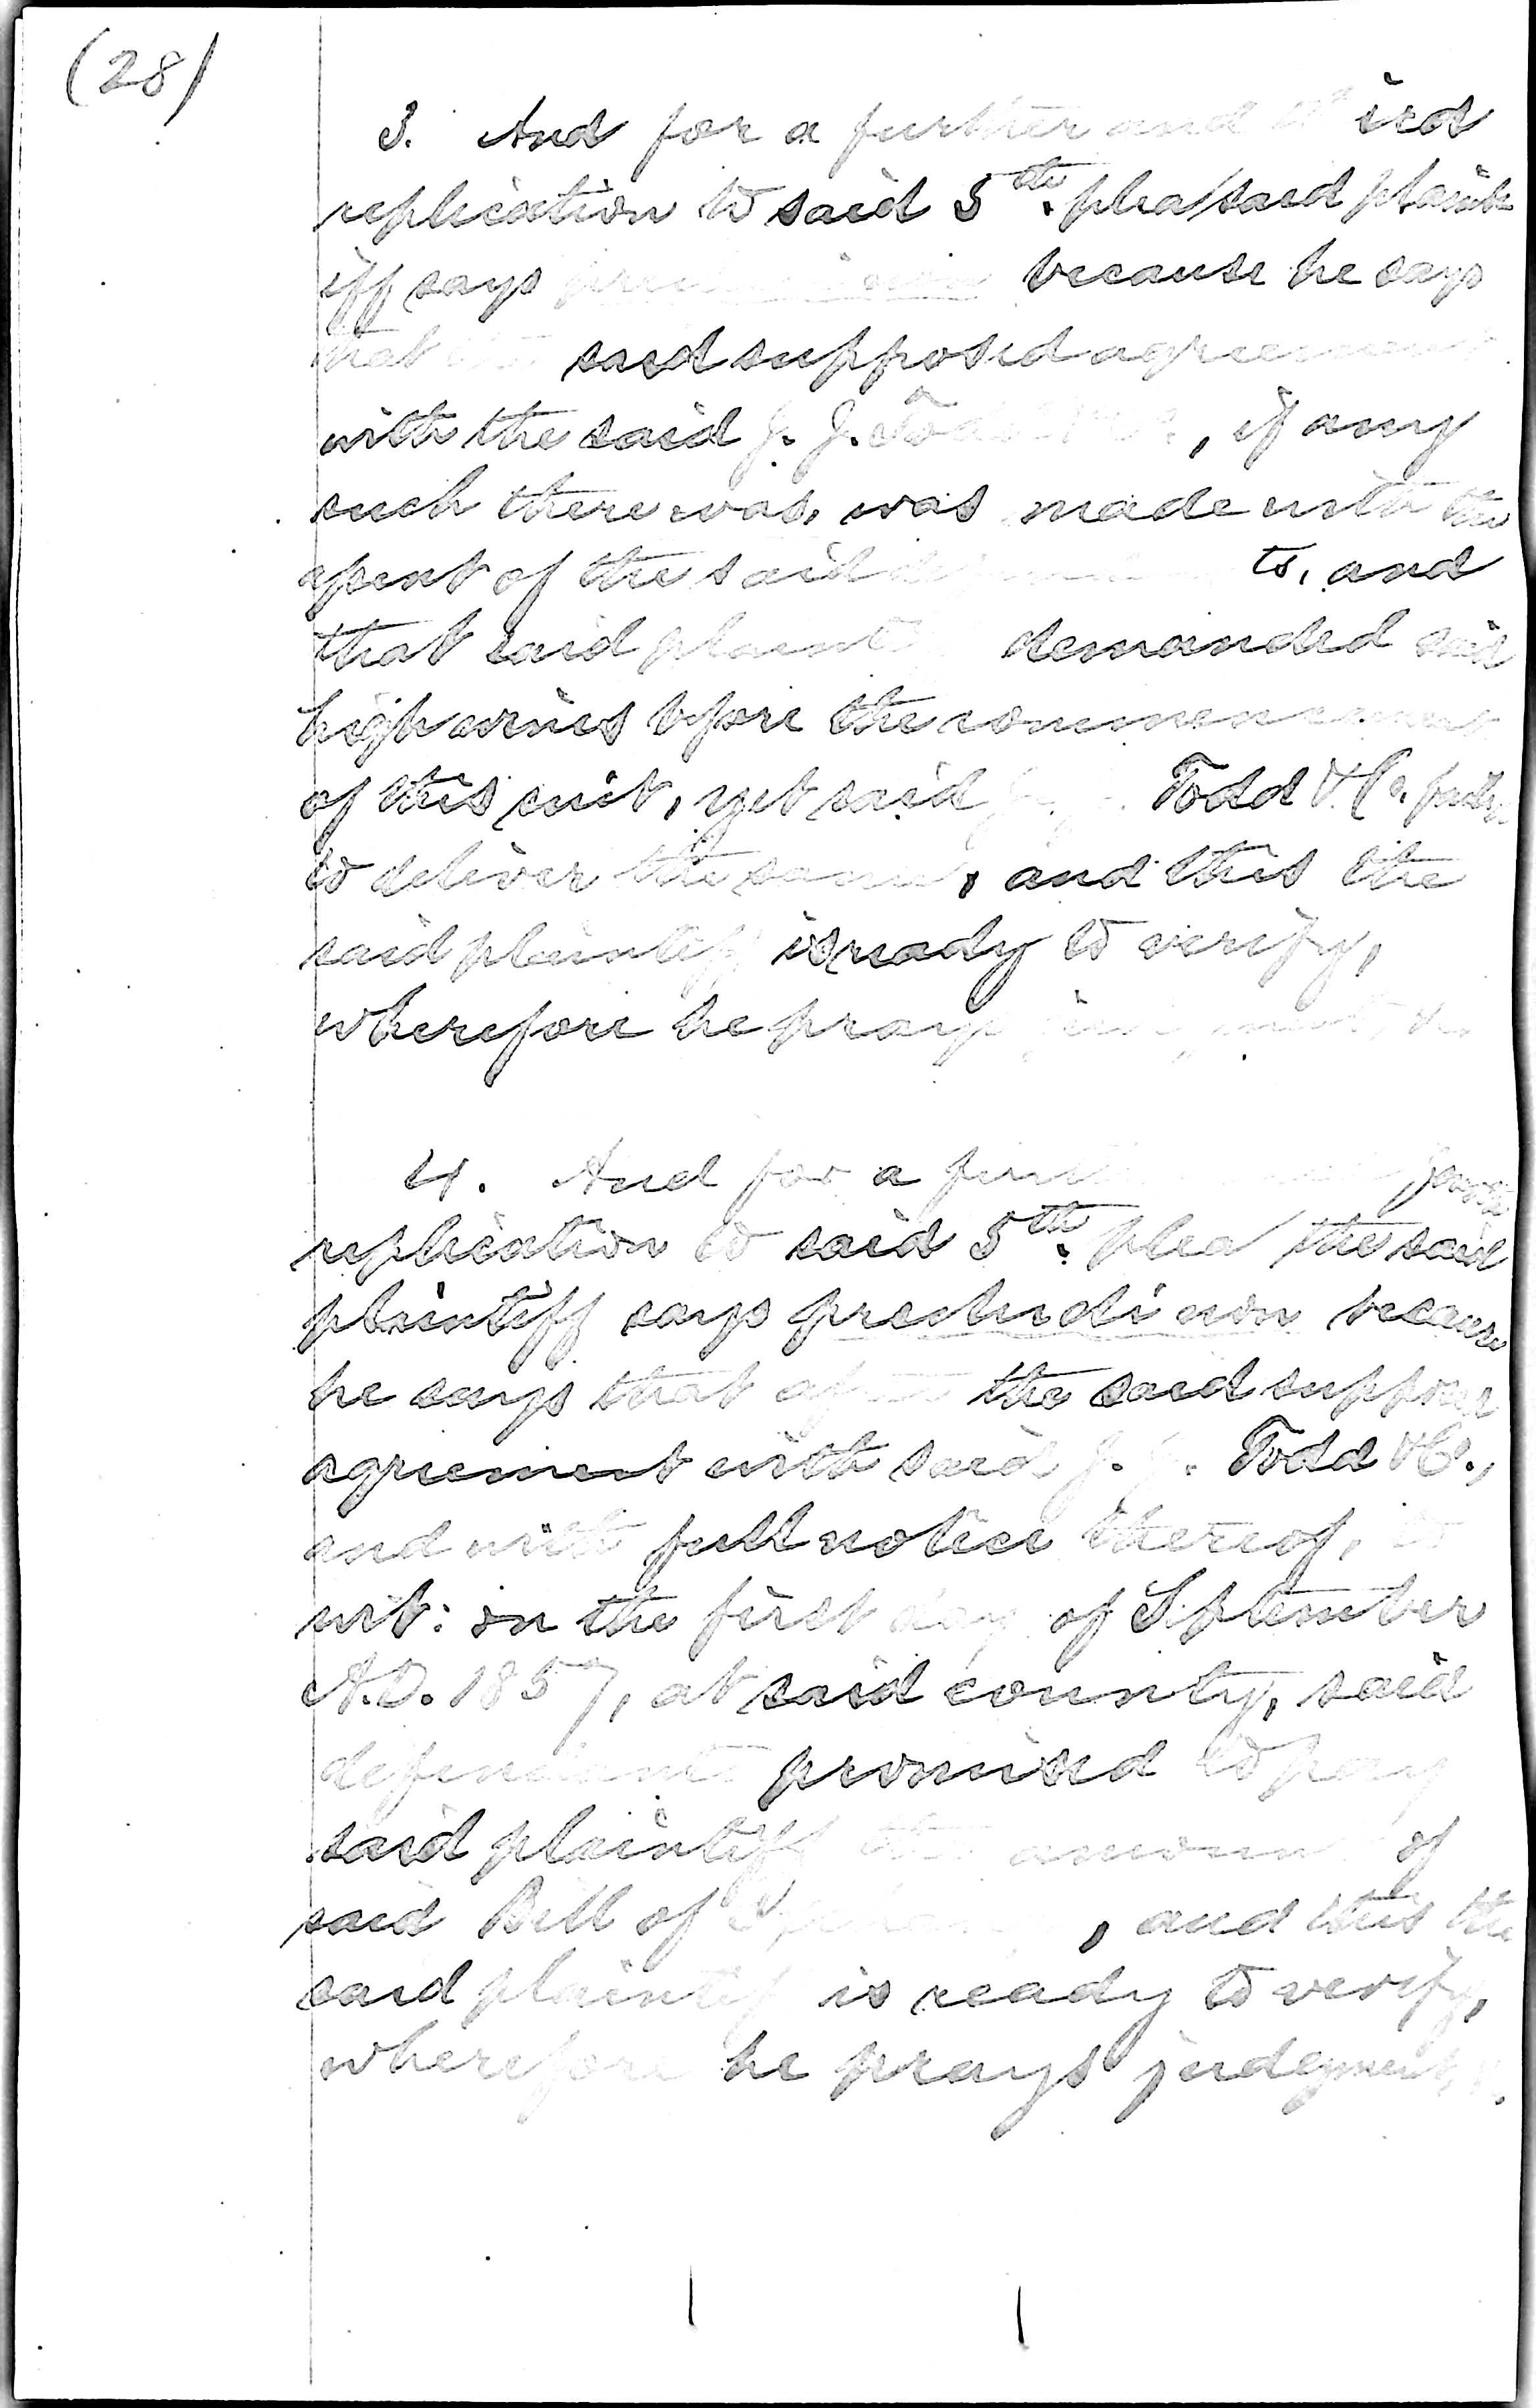 (28)
3. And for a further and third
replication to said 5th. plea said plaint
iff says because he says
that the said supposed agreement
with the said J. J. Todd & Co., if any
such there was, was made with the
agent of the said defendants, and
that said plaintiff demanded said
highwines before the commencement
of this suit, yet said Todd & Co. failed
to deliver the same, and this the
said plaintiff is ready to verify,
wherefore he prays judgment, &c.
4. And for a further fourth
replication to said 5th. plea the said
plaintiff says precludi non because
he says that after the said supposed
agreement with said J. J. Todd & Co.,
and with full notice thereof, to
wit: on the first day of September
A.D. 1857, at said county, said
defendants promised to pay
said plaintiff the amount of
said Bill of , and this the
said plaintiff is ready to verify,
wherefore he prays judgment, &c.